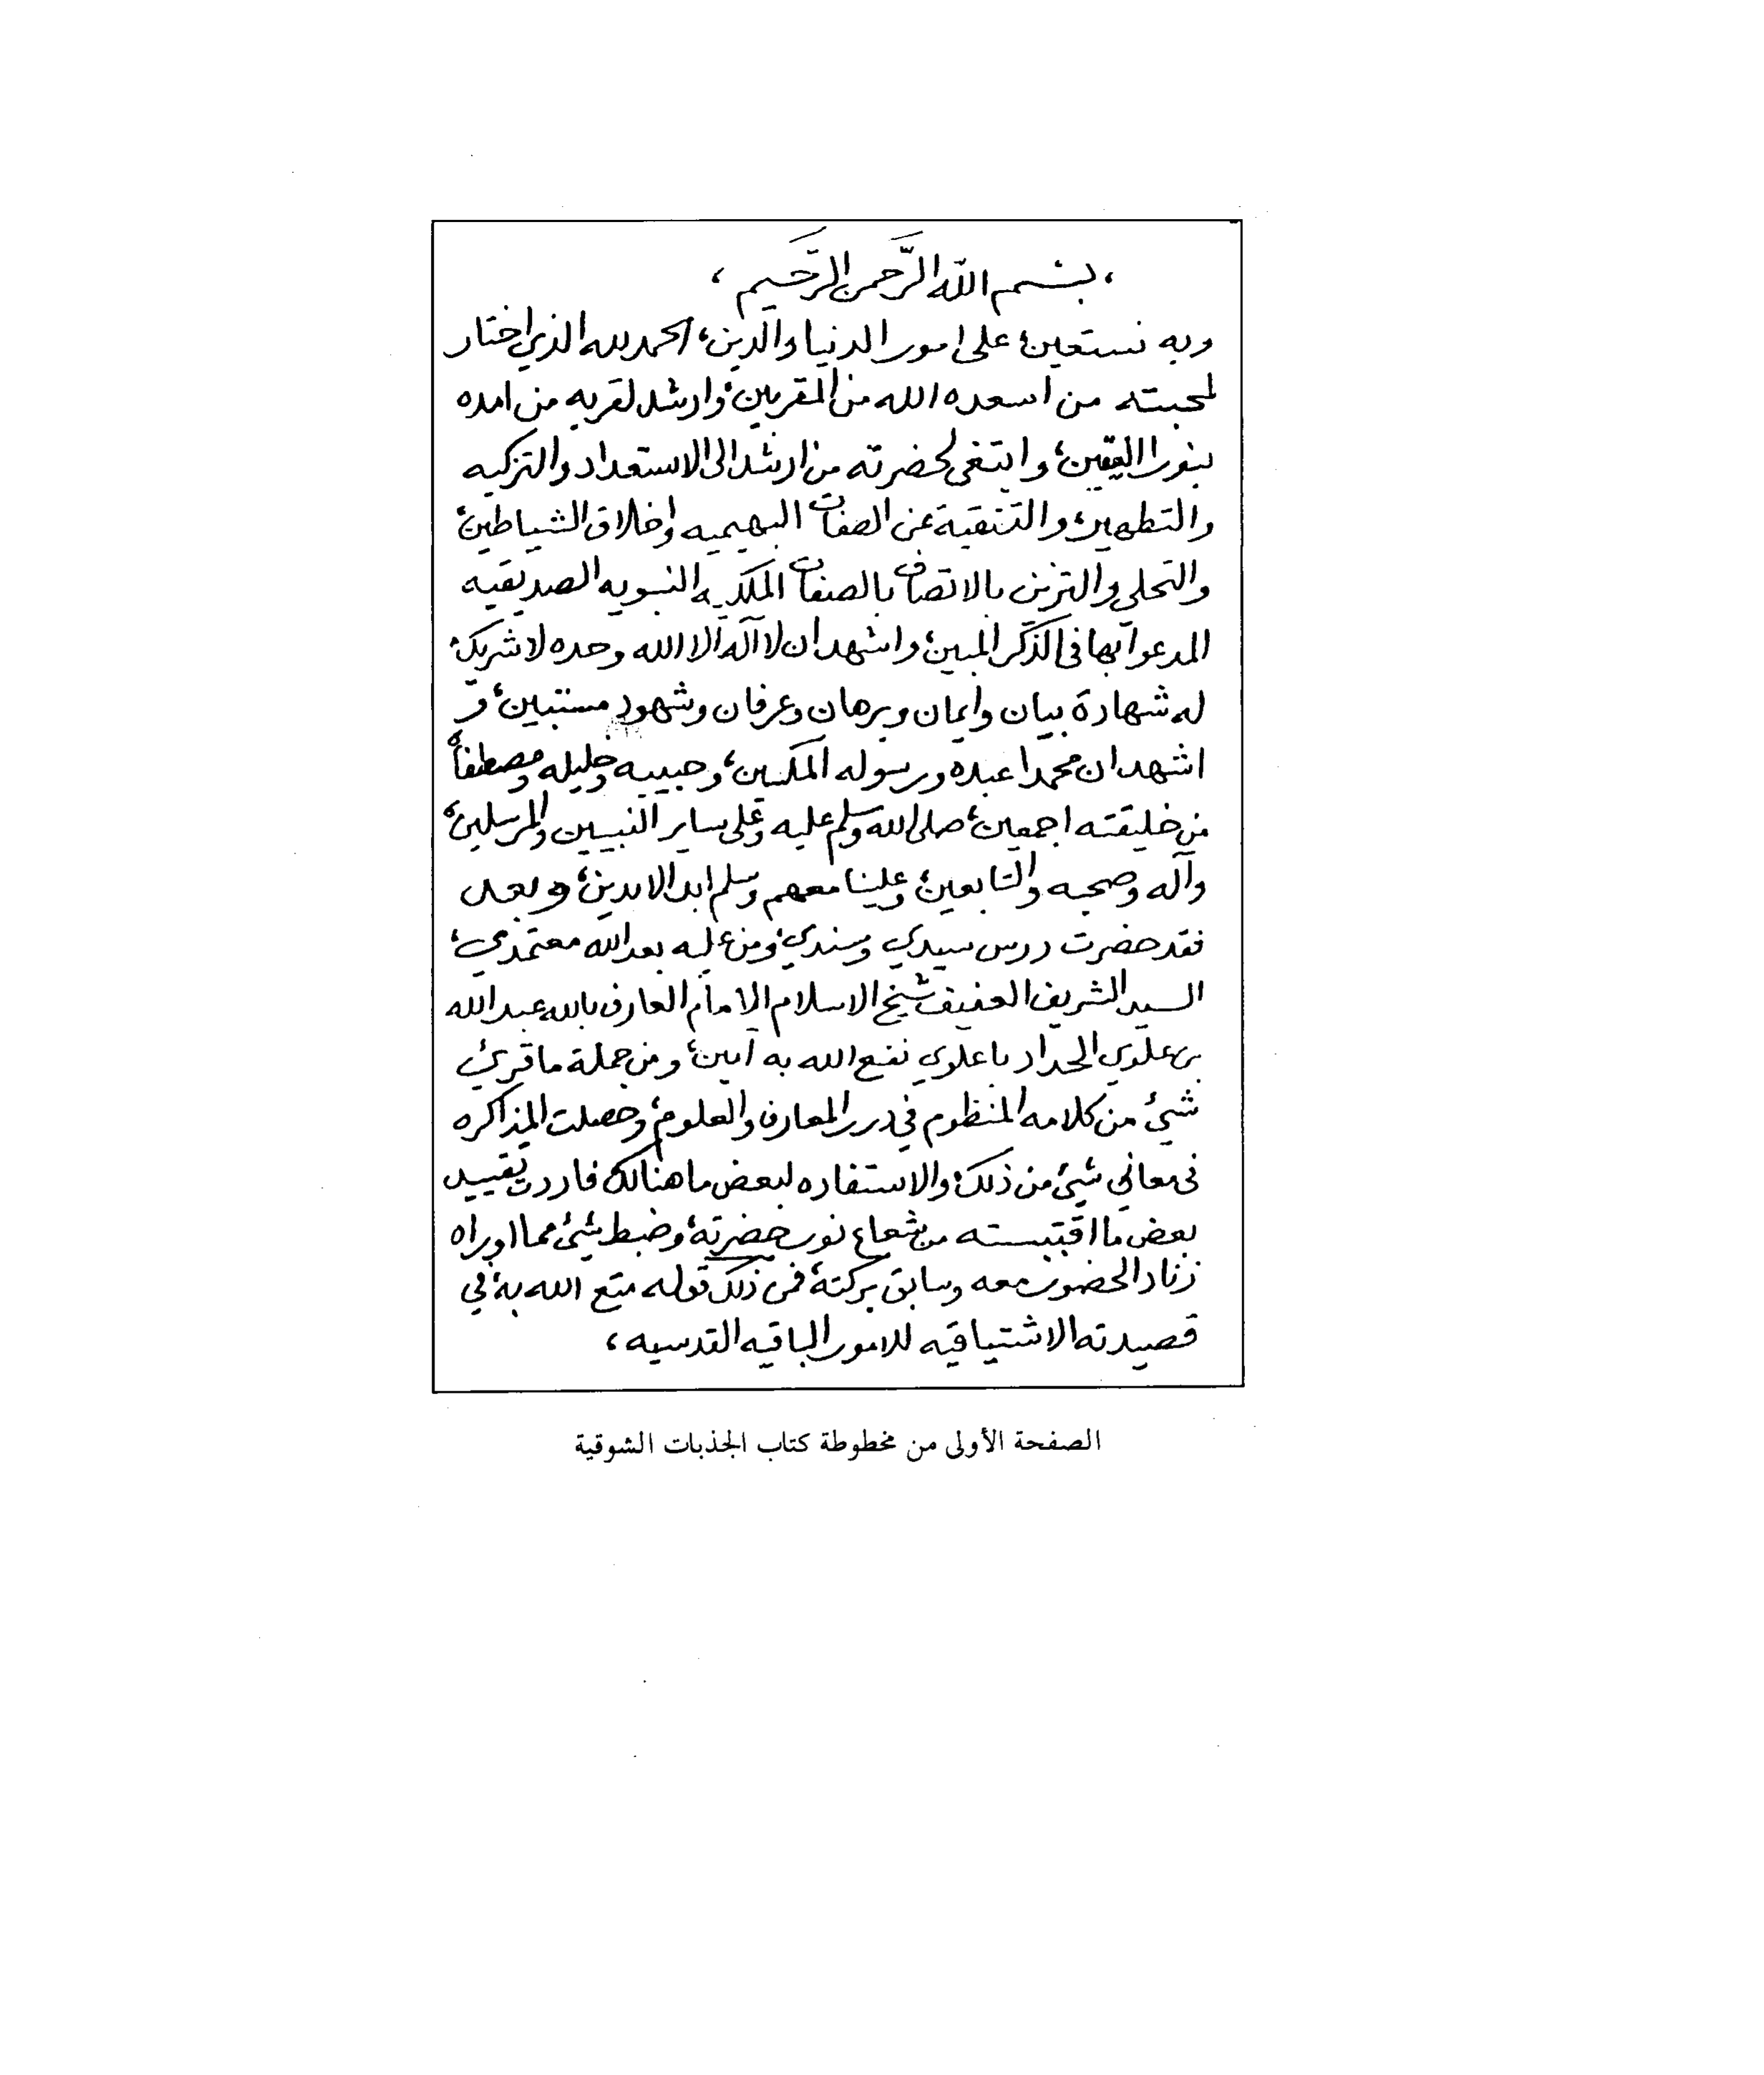 ، بسم الله الرَّحمن الرَّحيم ،
وبه نستعين، على امور الدنيا والدين، الحمد لله الذي اختار
لمحبته من اسعده الله من المقربين، وارشد لقربه من امده
بنور اليقين، وابتغى لحضرته من ارشد الى الاستعداد والتزكيه
والتطهير، والتنقية عن الصفات البهيميه واخلاق الشياطين،
والتحلي والتزين بالاتصاف بالصفات الملكيه النبويه الصديقيه
المدعوا بها فى الذكر المبين، واشهد ان لا اله الا الله وحده لا شريك
له شهادة بيان وايمان وبرهان وعرفان وشهود مستبين، و
اشهد ان محمدا عبده ورسوله المكين، وحبيبه وخليله ومصطفاه
من خليقته اجمعين، صلى الله وسلم عليه وعلى ساير النبيين والمرسلين،
وآله وصحبه والتابعين، وعلينا معهم وسلم ابد الابدين، وبعد
فقد حضرت درس سيدي وسندي، ومن عليه بعد الله معتمدي،
السيد الشريف العفيف شيخ الاسلام الامام العارف بالله عبد الله
بن علوي الحداد باعلوي نفع الله به آمين، ومن جملة ما قرئ
شيئ من كلامه المنظوم في درر المعارف والعلوم، وحصلت المذاكره
فى معاني شيئ من ذلك، والاستفاده لبعض ما هنالك فاردت تقييد
بعض ما اقتبسته من شعاع نور حضرته، وضبط شيئ مما اوراه
زناد الحضور معه وسابق بركته، فمن ذلك قوله متع الله به، في
قصيدته الاشتياقيه للامور الباقيه القدسيه ،
الصفحة الأولى من مخطوطة كتاب الجذبات الشوقية